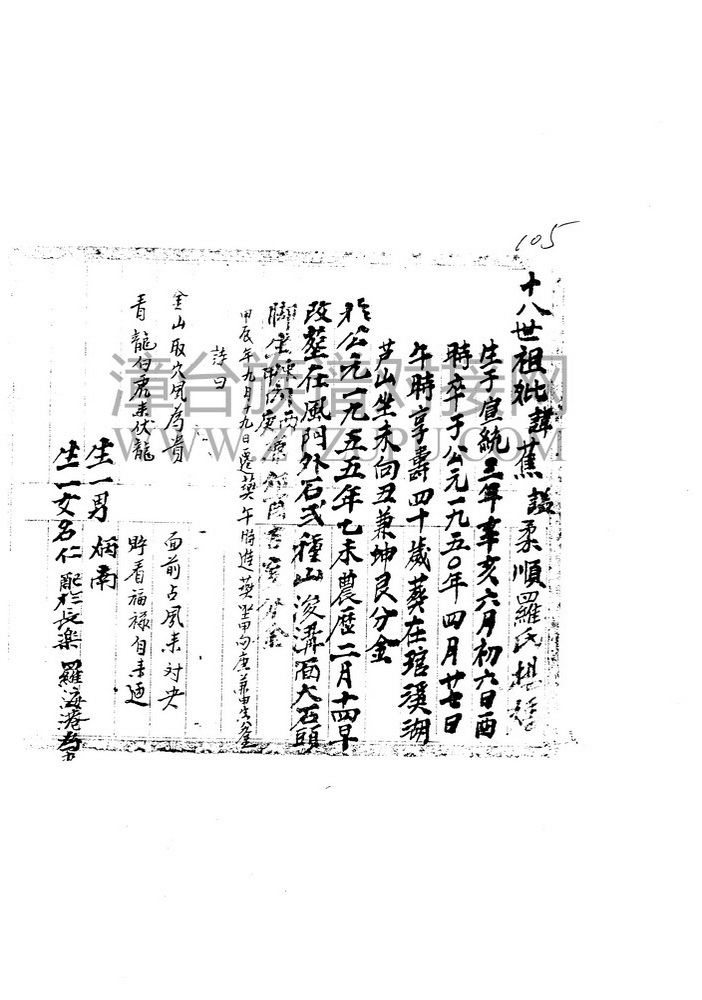 105
十八世祖妣諱蕉謚柔順羅氏
生于宣統三年辛亥六月初六日酉
時卒于公元一九五〇年四月廿七日
午時享壽四十歲葬在琯溪湖
芦山坐未向丑兼坤艮分金
於公元一九五五年乙未農歷二月十四早
改塟在風門外石弐種山後溝面大石頭
脚坐
甲辰年九月十九日遷葵午時進葵坐甲向庚兼
詩曰
金山取穴風為貴 面前占风来对央
青龍白虎来伏龍 貯看福禄自来迊
生一男 炳南
生一女名仁配於長樂羅海
漳台族谱对接网
WWW.ZTZUPU.COM